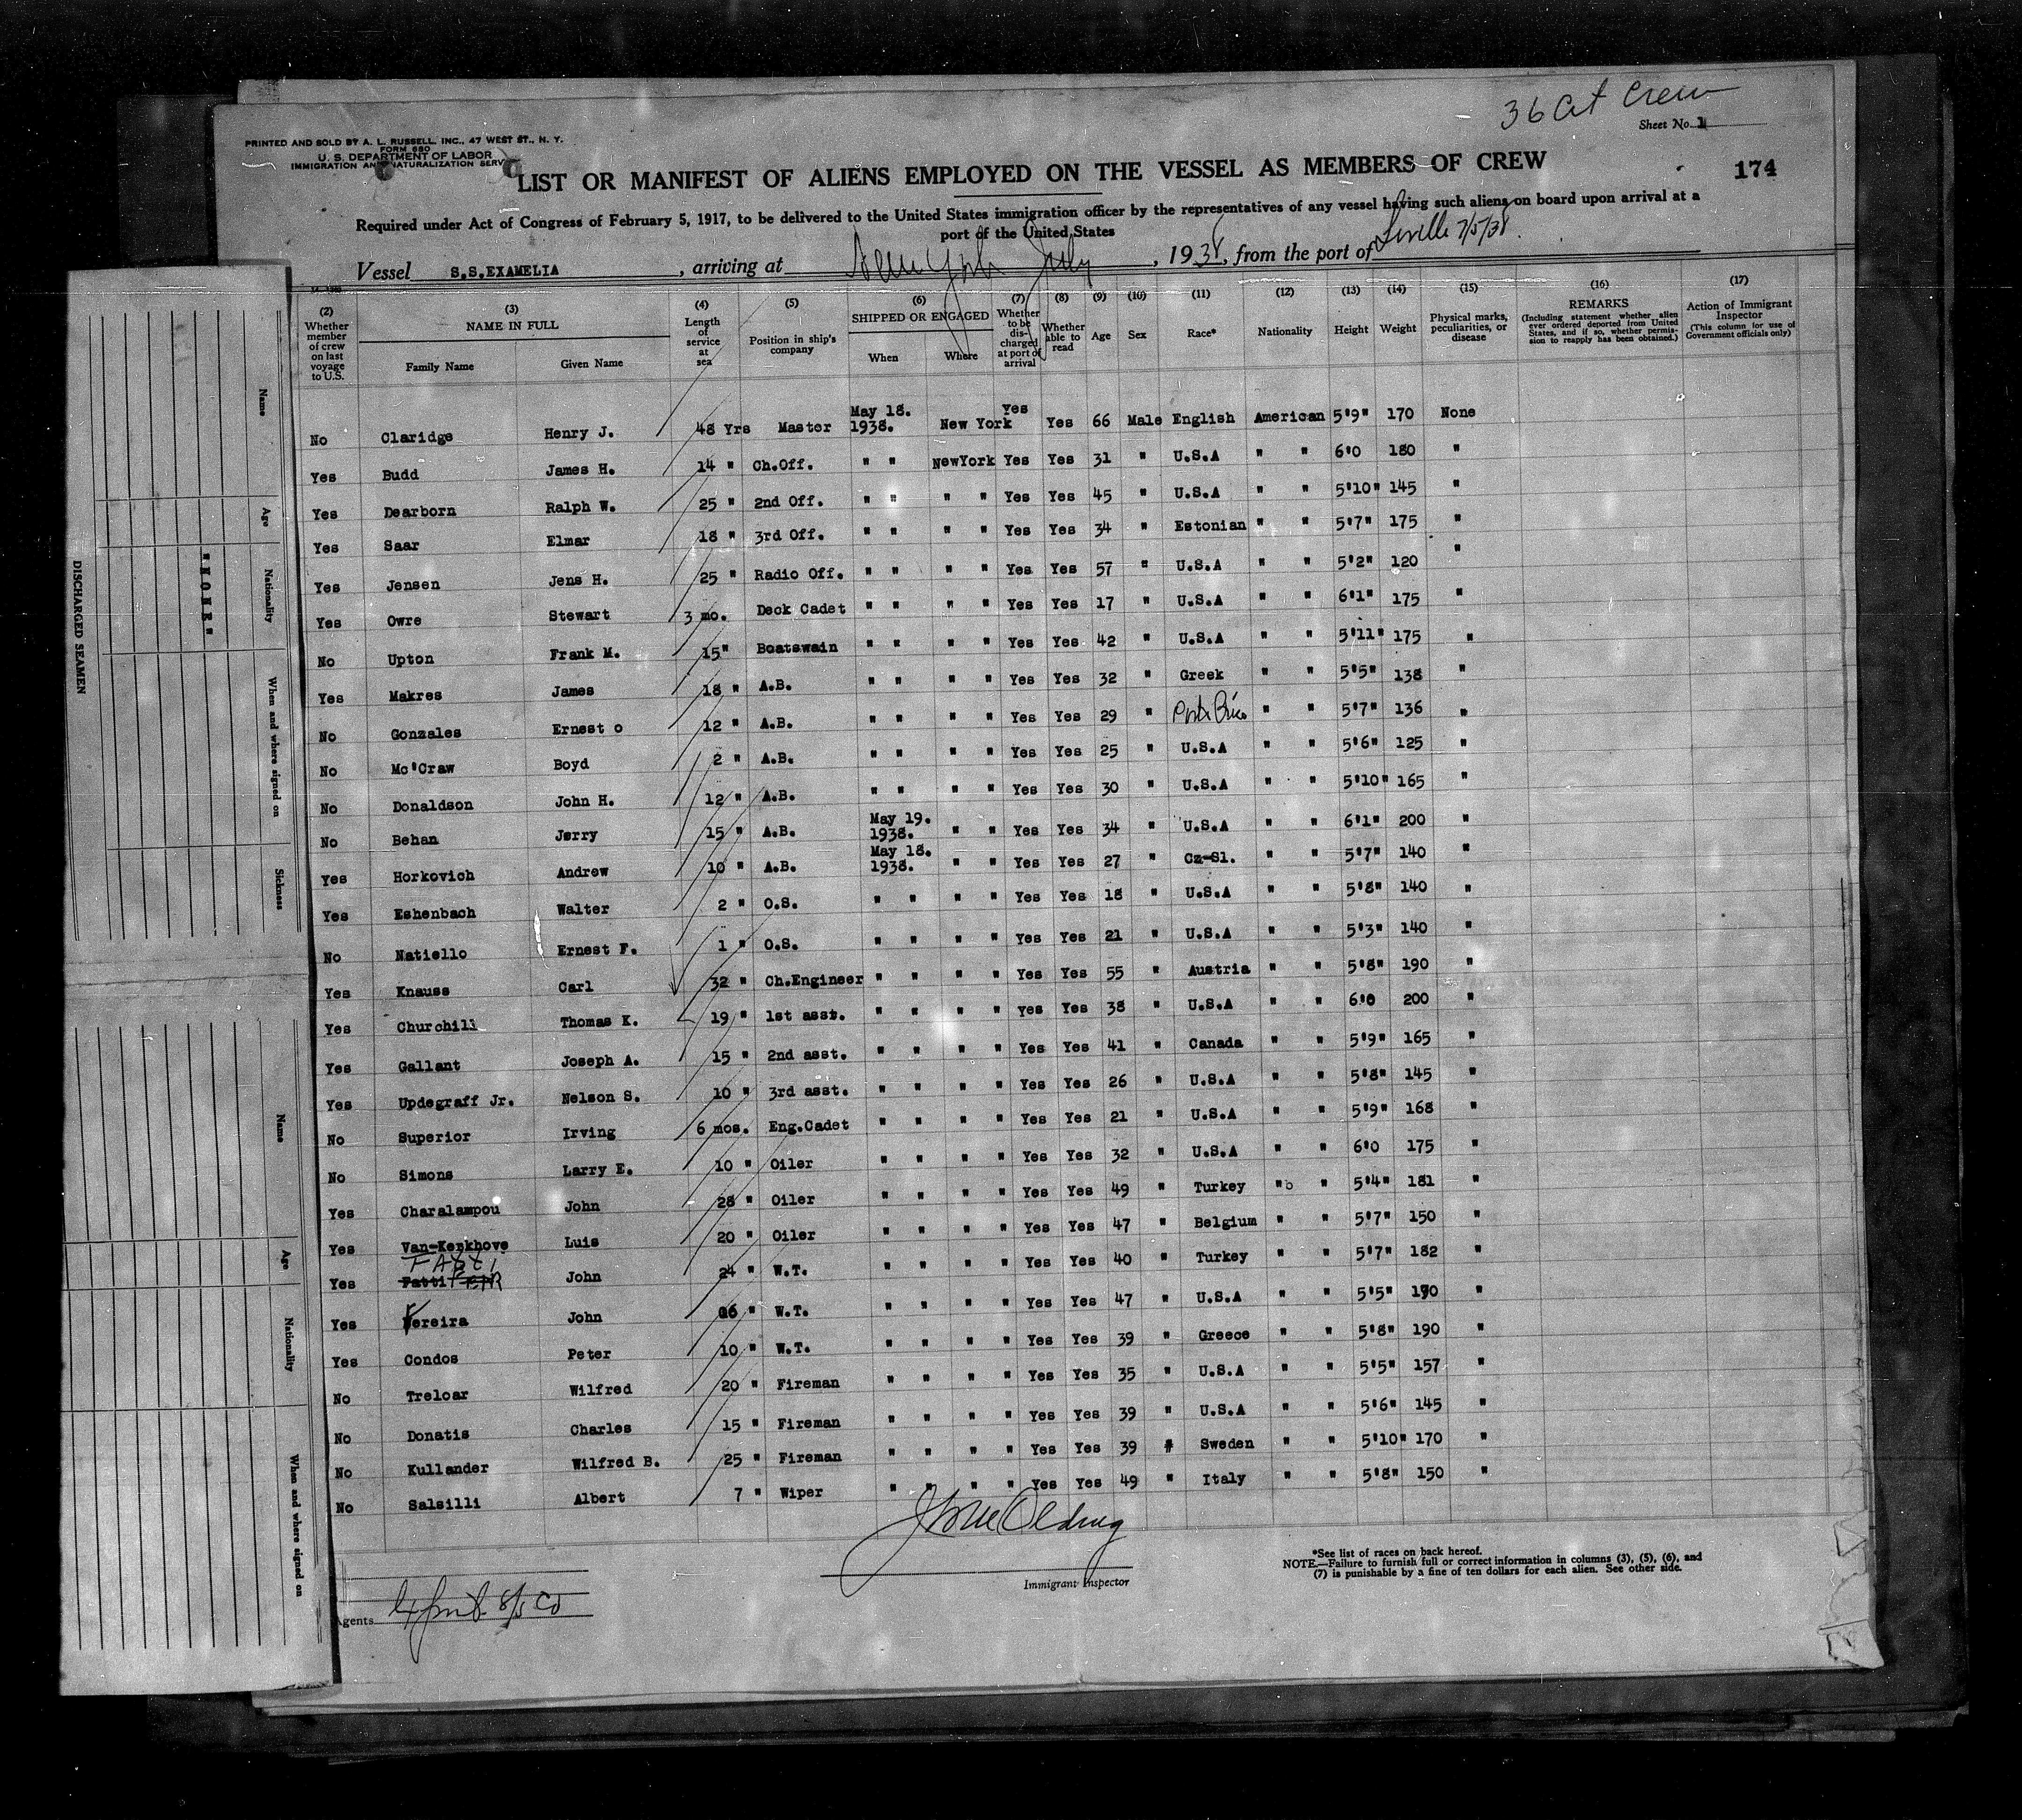 36 Cit Crew
Sheet No. 1
PRINTED AND SOLD BY A. L. RUSSELL, INC., 47 WEST ST., N. Y.
FORM 680
U. S. DEPARTMENT OF LABOR
IMMIGRATION AND NATURALIZATION SERV
LIST OR MANIFEST OF ALIENS EMPLOYED ON THE VESSEL AS MEMBERS OF CREW
174
Required under Act of Congress of February 5, 1917, to be delivered to the United States immigration officer by the representatives of any vessel having such aliens on board upon arrival at a
port of the United States
Vessel S.S.EXAMELIA, arriving at New York July, 1938, from the port of Seville 7/5/38.
(2) Whether member of crew on last voyage to U.S.
(3) NAME IN FULL Family Name Given Name
(4) Length of service at sea
(5) Position in ship's company
(6) SHIPPED OR ENGAGED When Where
(7) Whether to be discharged at port of arrival
(8) Whether able to read
(9) Age
(10) Sex
(11) Race*
(12) Nationality
(13) Height
(14) Weight
(15) Physical marks, peculiarities, or disease
(16) REMARKS (Including statement whether alien ever ordered deported from United States, and if so, whether permission to reapply has been obtained.)
(17) Action of Immigrant Inspector (This column for use of Government officials only)
No Claridge Henry J. 48 Yrs Master May 18. 1938. New York Yes Yes 66 Male English American 5'9" 170 None
Yes Budd James H. 14 " Ch.Off. " " NewYork Yes Yes 31 " U.S.A " " 6'0 180 "
Yes Dearborn Ralph W. 25 " 2nd Off. " " " " Yes Yes 45 " U.S.A " " 5'10" 145 "
Yes Saar Elmar 18 " 3rd Off. " " " " Yes Yes 34 " Estonian " " 5'7" 175 "
Yes Jensen Jens H. 25 " Radio Off. " " " " Yes Yes 57 " U.S.A " " 5'2" 120 "
Yes Owre Stewart 3 mo. Deck Cadet " " " " Yes Yes 17 " U.S.A " " 6'1" 175 "
No Upton Frank M. 15" Boatswain " " " " Yes Yes 42 " U.S.A " " 5'11" 175 "
Yes Makres James 18 " A.B. " " " " Yes Yes 32 " Greek " " 5'5" 138 "
No Gonzales Ernest o 12 " A.B. " " " " Yes Yes 29 " Porto Rico " " 5'7" 136 "
No Mc'Craw Boyd 2 " A.B. " " " " Yes Yes 25 " U.S.A " " 5'6" 125 "
No Donaldson John H. 12 " A.B. " " " " Yes Yes 30 " U.S.A " " 5'10" 165 "
No Behan Jerry 15 " A.B. May 19. 1938. " " Yes Yes 34 " U.S.A " " 6'1" 200 "
Yes Horkovich Andrew 10 " A.B. May 18. 1938. " " Yes Yes 27 " Cz-Sl. " " 5'7" 140 "
Yes Eshenbach Walter 2 " O.S. " " " " Yes Yes 18 " U.S.A " " 5'8" 140 "
No Natiello Ernest F. 1 " O.S. " " " " Yes Yes 21 " U.S.A " " 5'3" 140 "
Yes Knauss Carl 32 " Ch.Engineer " " " " Yes Yes 55 " Austria " " 5'8" 190 "
Yes Churchill Thomas K. 19 " 1st asst. " " " " Yes Yes 38 " U.S.A " " 6'0 200 "
Yes Gallant Joseph A. 15 " 2nd asst. " " " " Yes Yes 41 " Canada " " 5'9" 165 "
Yes Updegraff Jr. Nelson S. 10 " 3rd asst. " " " " Yes Yes 26 " U.S.A " " 5'8" 145 "
No Superior Irving 6 mos. Eng.Cadet " " " " Yes Yes 21 " U.S.A " " 5'9" 168 "
No Simons Larry E. 10 " Oiler " " " " Yes Yes 32 " U.S.A " " 6'0 175 "
Yes Charalampou John 28 " Oiler " " " " Yes Yes 49 " Turkey " " 5'4" 181 "
Yes Van-Kerkhove Luis 20 " Oiler " " " " Yes Yes 47 " Belgium " " 5'7" 150 "
Yes Fatti John 24 " W.T. " " " " Yes Yes 40 " Turkey " " 5'7" 182 "
Yes Vereira John 26 " W.T. " " " " Yes Yes 47 " U.S.A " " 5'5" 190 "
Yes Condos Peter 10 " W.T. " " " " Yes Yes 39 " Greece " " 5'8" 190 "
No Treloar Wilfred 20 " Fireman " " " " Yes Yes 35 " U.S.A " " 5'5" 157 "
No Donatis Charles 15 " Fireman " " " " Yes Yes 39 " U.S.A " " 5'6" 145 "
No Kullander Wilfred B. 25 " Fireman " " " " Yes Yes 39 " Sweden " " 5'10" 170 "
No Salsilli Albert 7 " Wiper " " " " Yes Yes 49 " Italy " " 5'8" 150 "
Immigrant Inspector
*See list of races on back hereof.
NOTE.—Failure to furnish full or correct information in columns (3), (5), (6), and
(7) is punishable by a fine of ten dollars for each alien. See other side.
Agents Export S/S Co
DISCHARGED SEAMEN
Name
Age
Nationality
When and where signed on
Sickness
"NONE"
Name
Age
Nationality
When and where signed on